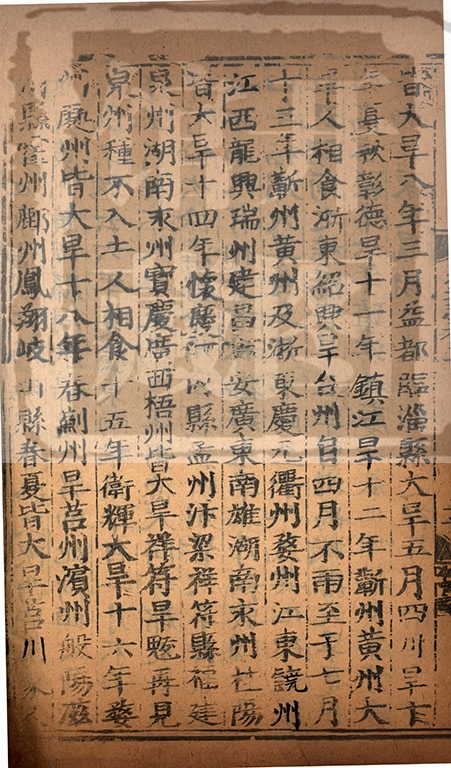 皆大旱八年三月益都臨淄縣大旱五月四川旱十
年夏秋彰德旱十一年鎮江旱十二年蘄州黃州大
旱人相食浙東紹興旱台州自四月不雨至于七月
十三年蘄州黃州及浙東慶元衢州婺州江東饒州
江西龍興瑞州建昌吉安廣東南雄湖南永州桂陽
皆大旱十四年懷慶河內縣孟州汴梁祥符縣福建
泉州湖南永州寶慶廣西梧州皆大旱祥符旱魃再見
泉州種不入土人相食十五年衛輝大旱十六年婺
處州皆大旱十八年春薊州旱莒州濱州般陽
縣霍州鄜州鳳翔岐山縣春夏皆大旱莒州